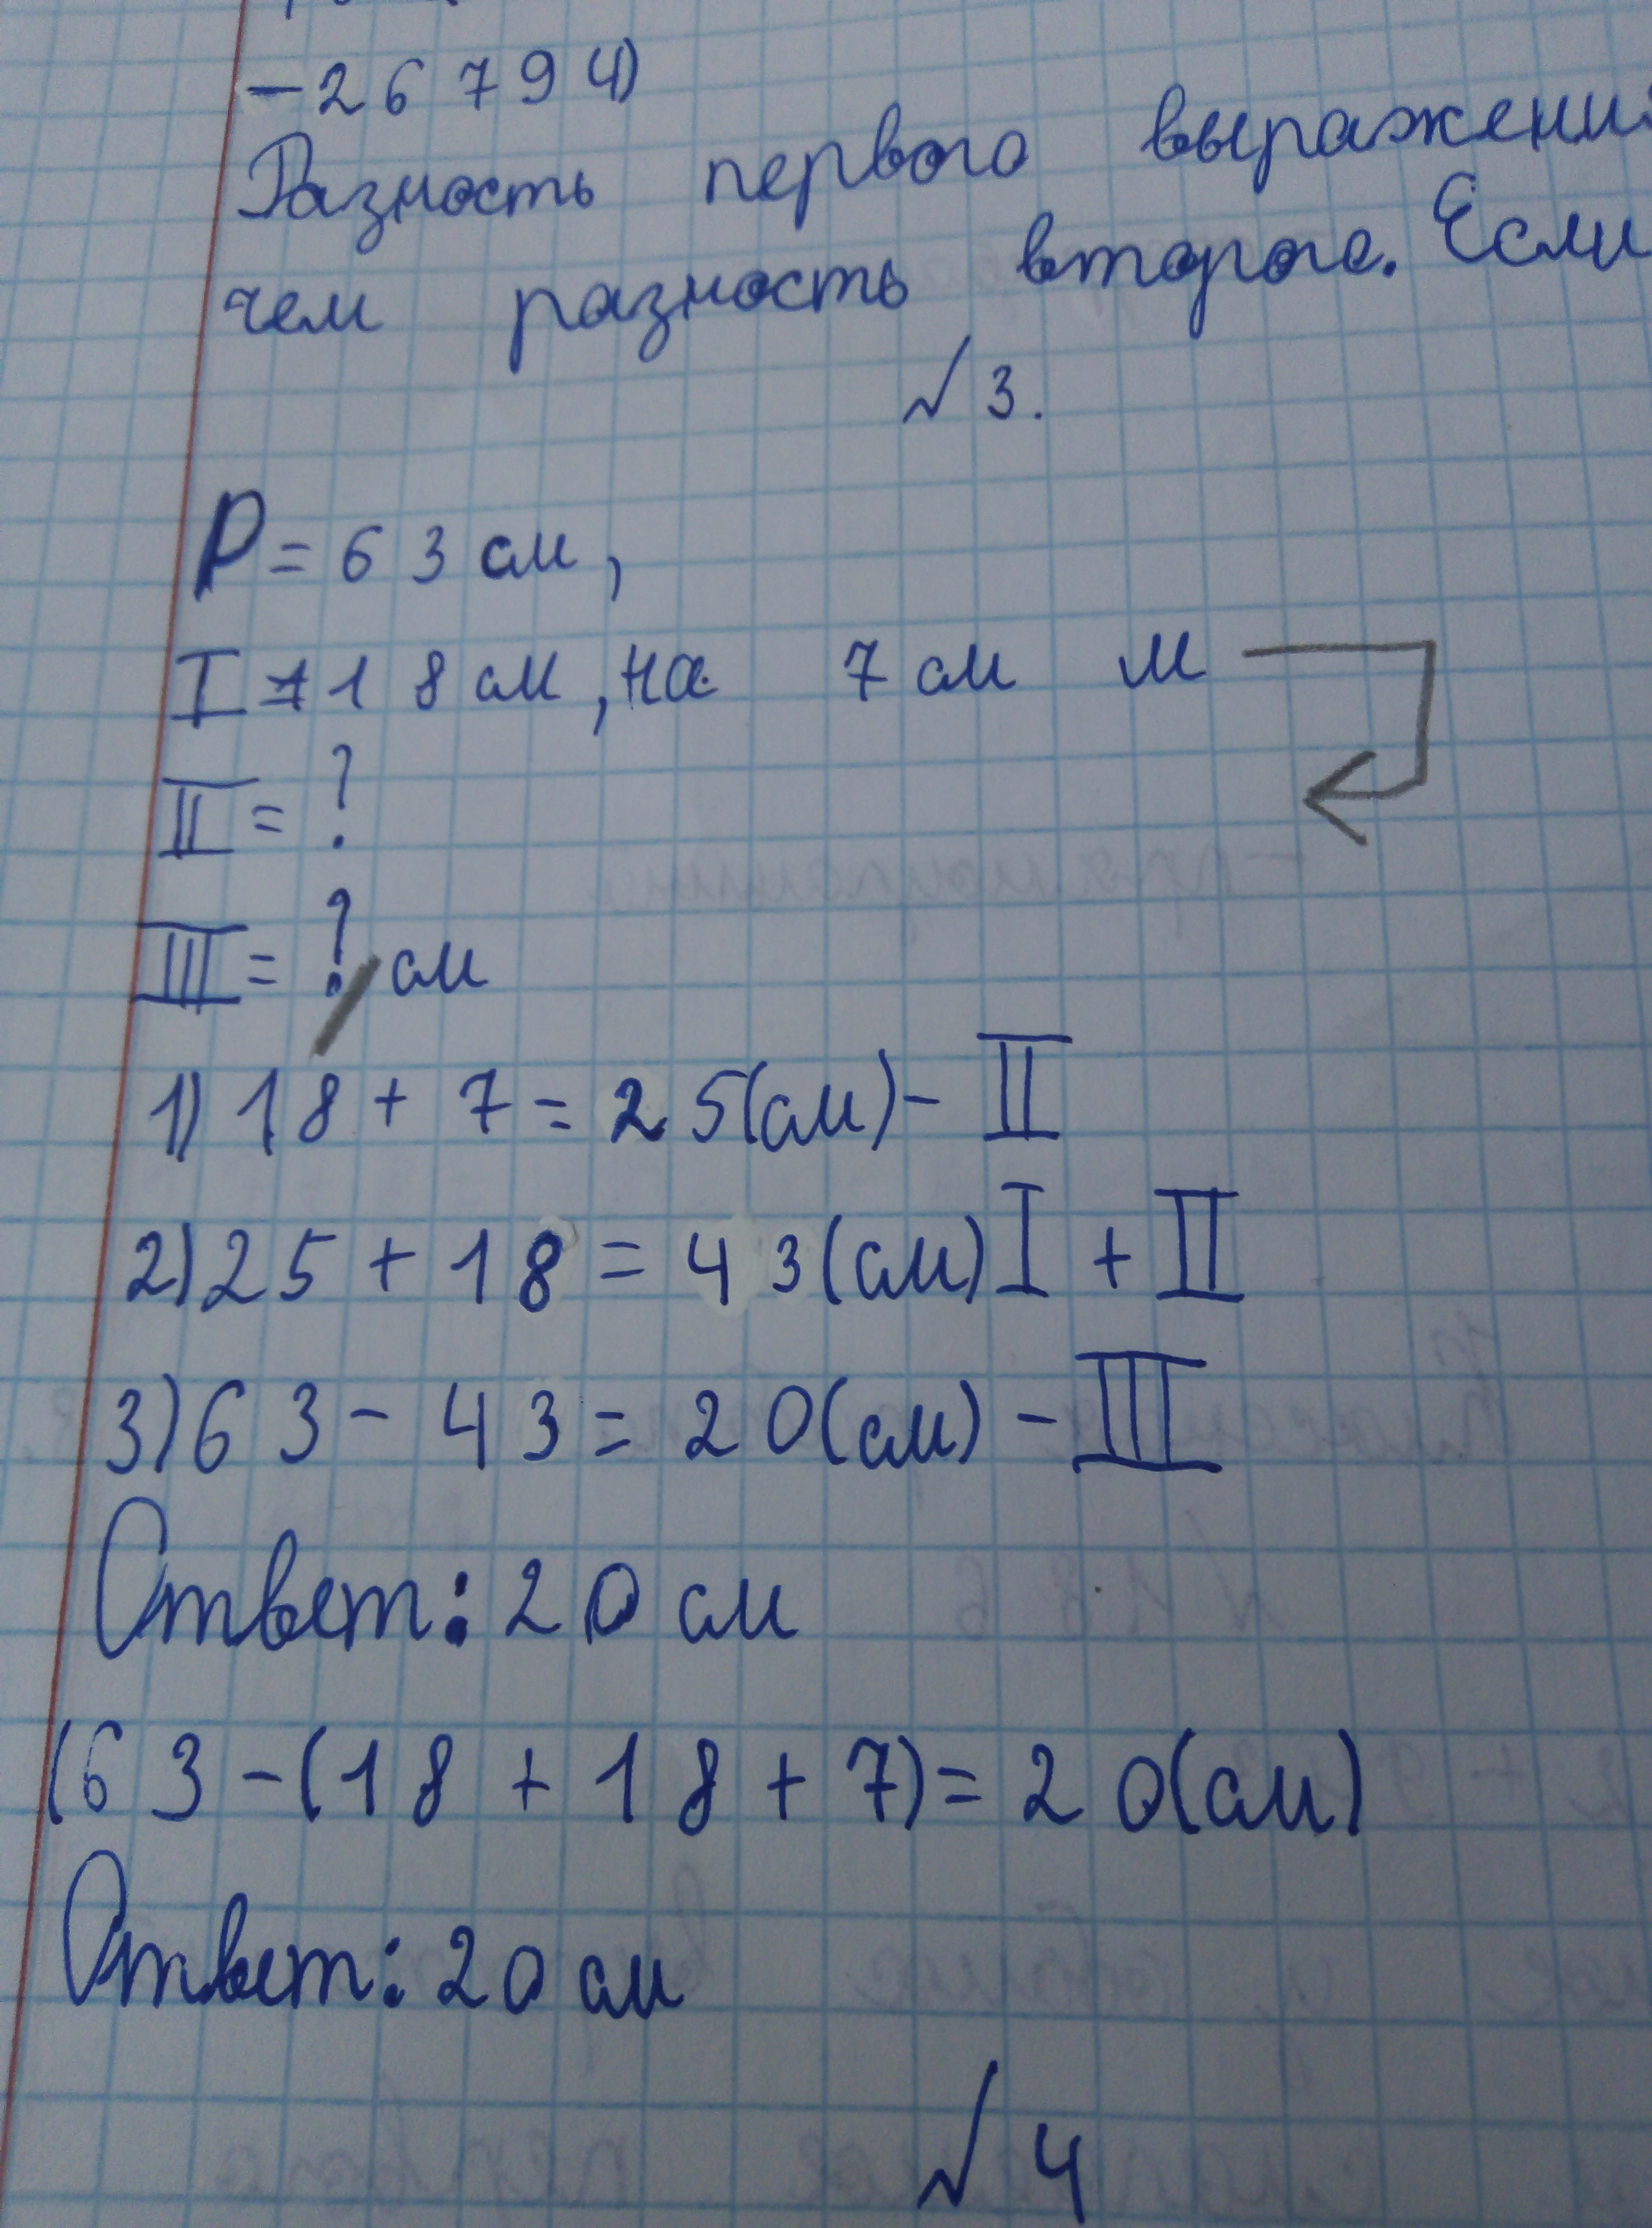 - 2 6 7 9 4)
Разность первого выражени
чем разность второго. Если
№ 3.
P = 63 см,
I = 18 см, на 7 см м
II = ?
III = ? см
1) 18 + 7 = 25(см) - II
2) 25 + 18 = 43(см) I + II
3) 63 - 43 = 20(см) - III
Ответ: 20 см
(63 - (18 + 18 + 7) = 20(см)
Ответ: 20 см
№ 4